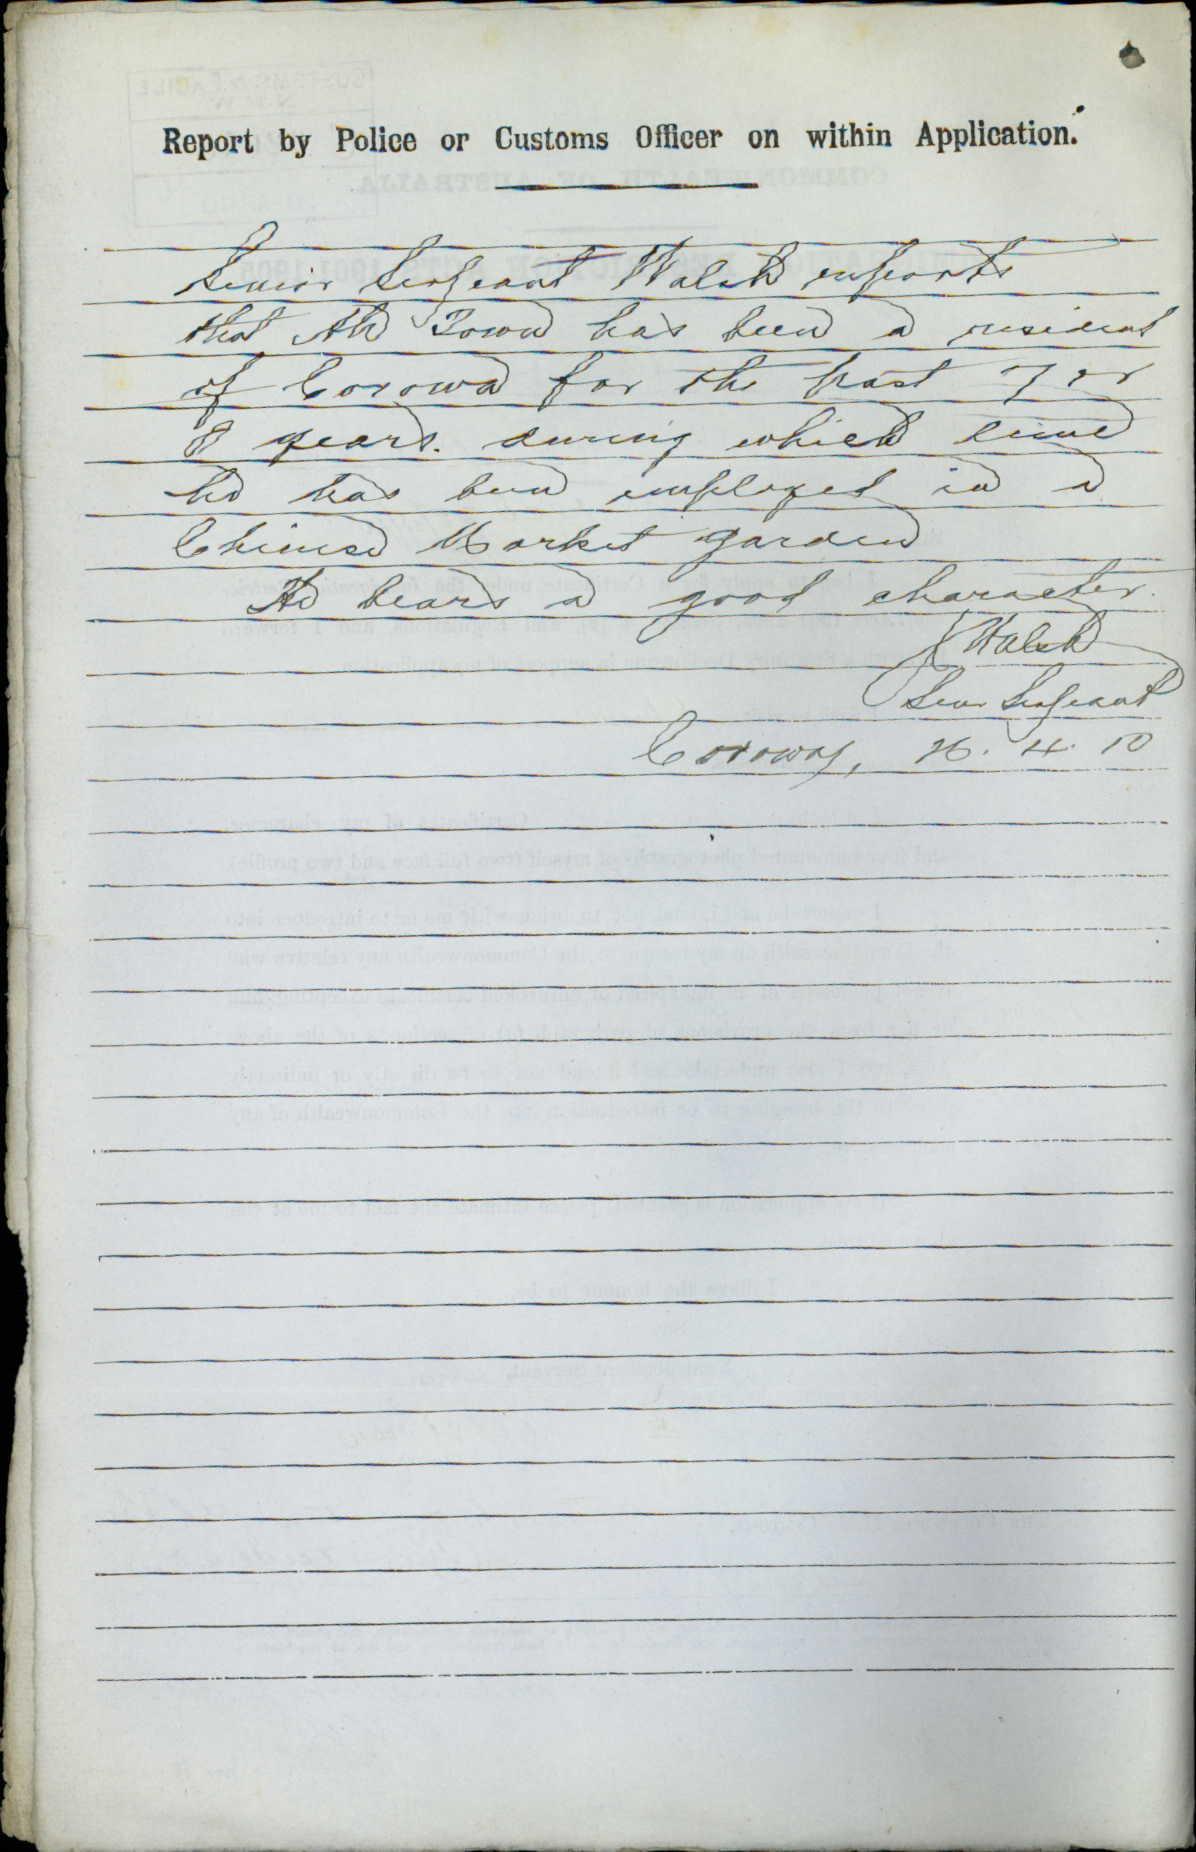 Report by Police or Customs Officer on within Application.
Senior Sergeant Walsh reports
that Ah Town has been a resident
of Corowa for the past 7 or
8 years. during which time
he has been employed in a
Chinese Market garden
He bears a good character.
J Walsh
Senr Sergeant
Corowa, 26. 4. 10